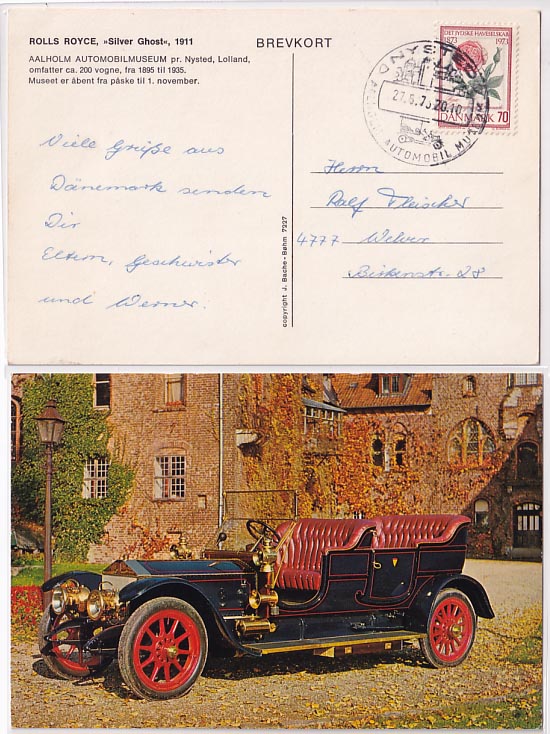 ROLLS ROYCE, »Silver Ghost«, 1911
AALHOLM AUTOMOBILMUSEUM pr. Nysted, Lolland,
omfatter ca. 200 vogne, fra 1895 til 1935.
Museet er åbent fra påske til 1. november.
BREVKORT
DET JYDSKE HAVESELSKAB
1873 1973
DANMARK 70
NYSTED
20.10
AUTOMOBIL
Viele Grüße aus
Dänemark senden
Dir
Eltern, Geschwister
und Werner.
copyright J. Bache-Bøhm 7227
Herrn
Ralf Fleischer
4777 Welver
Birkenstr. 28